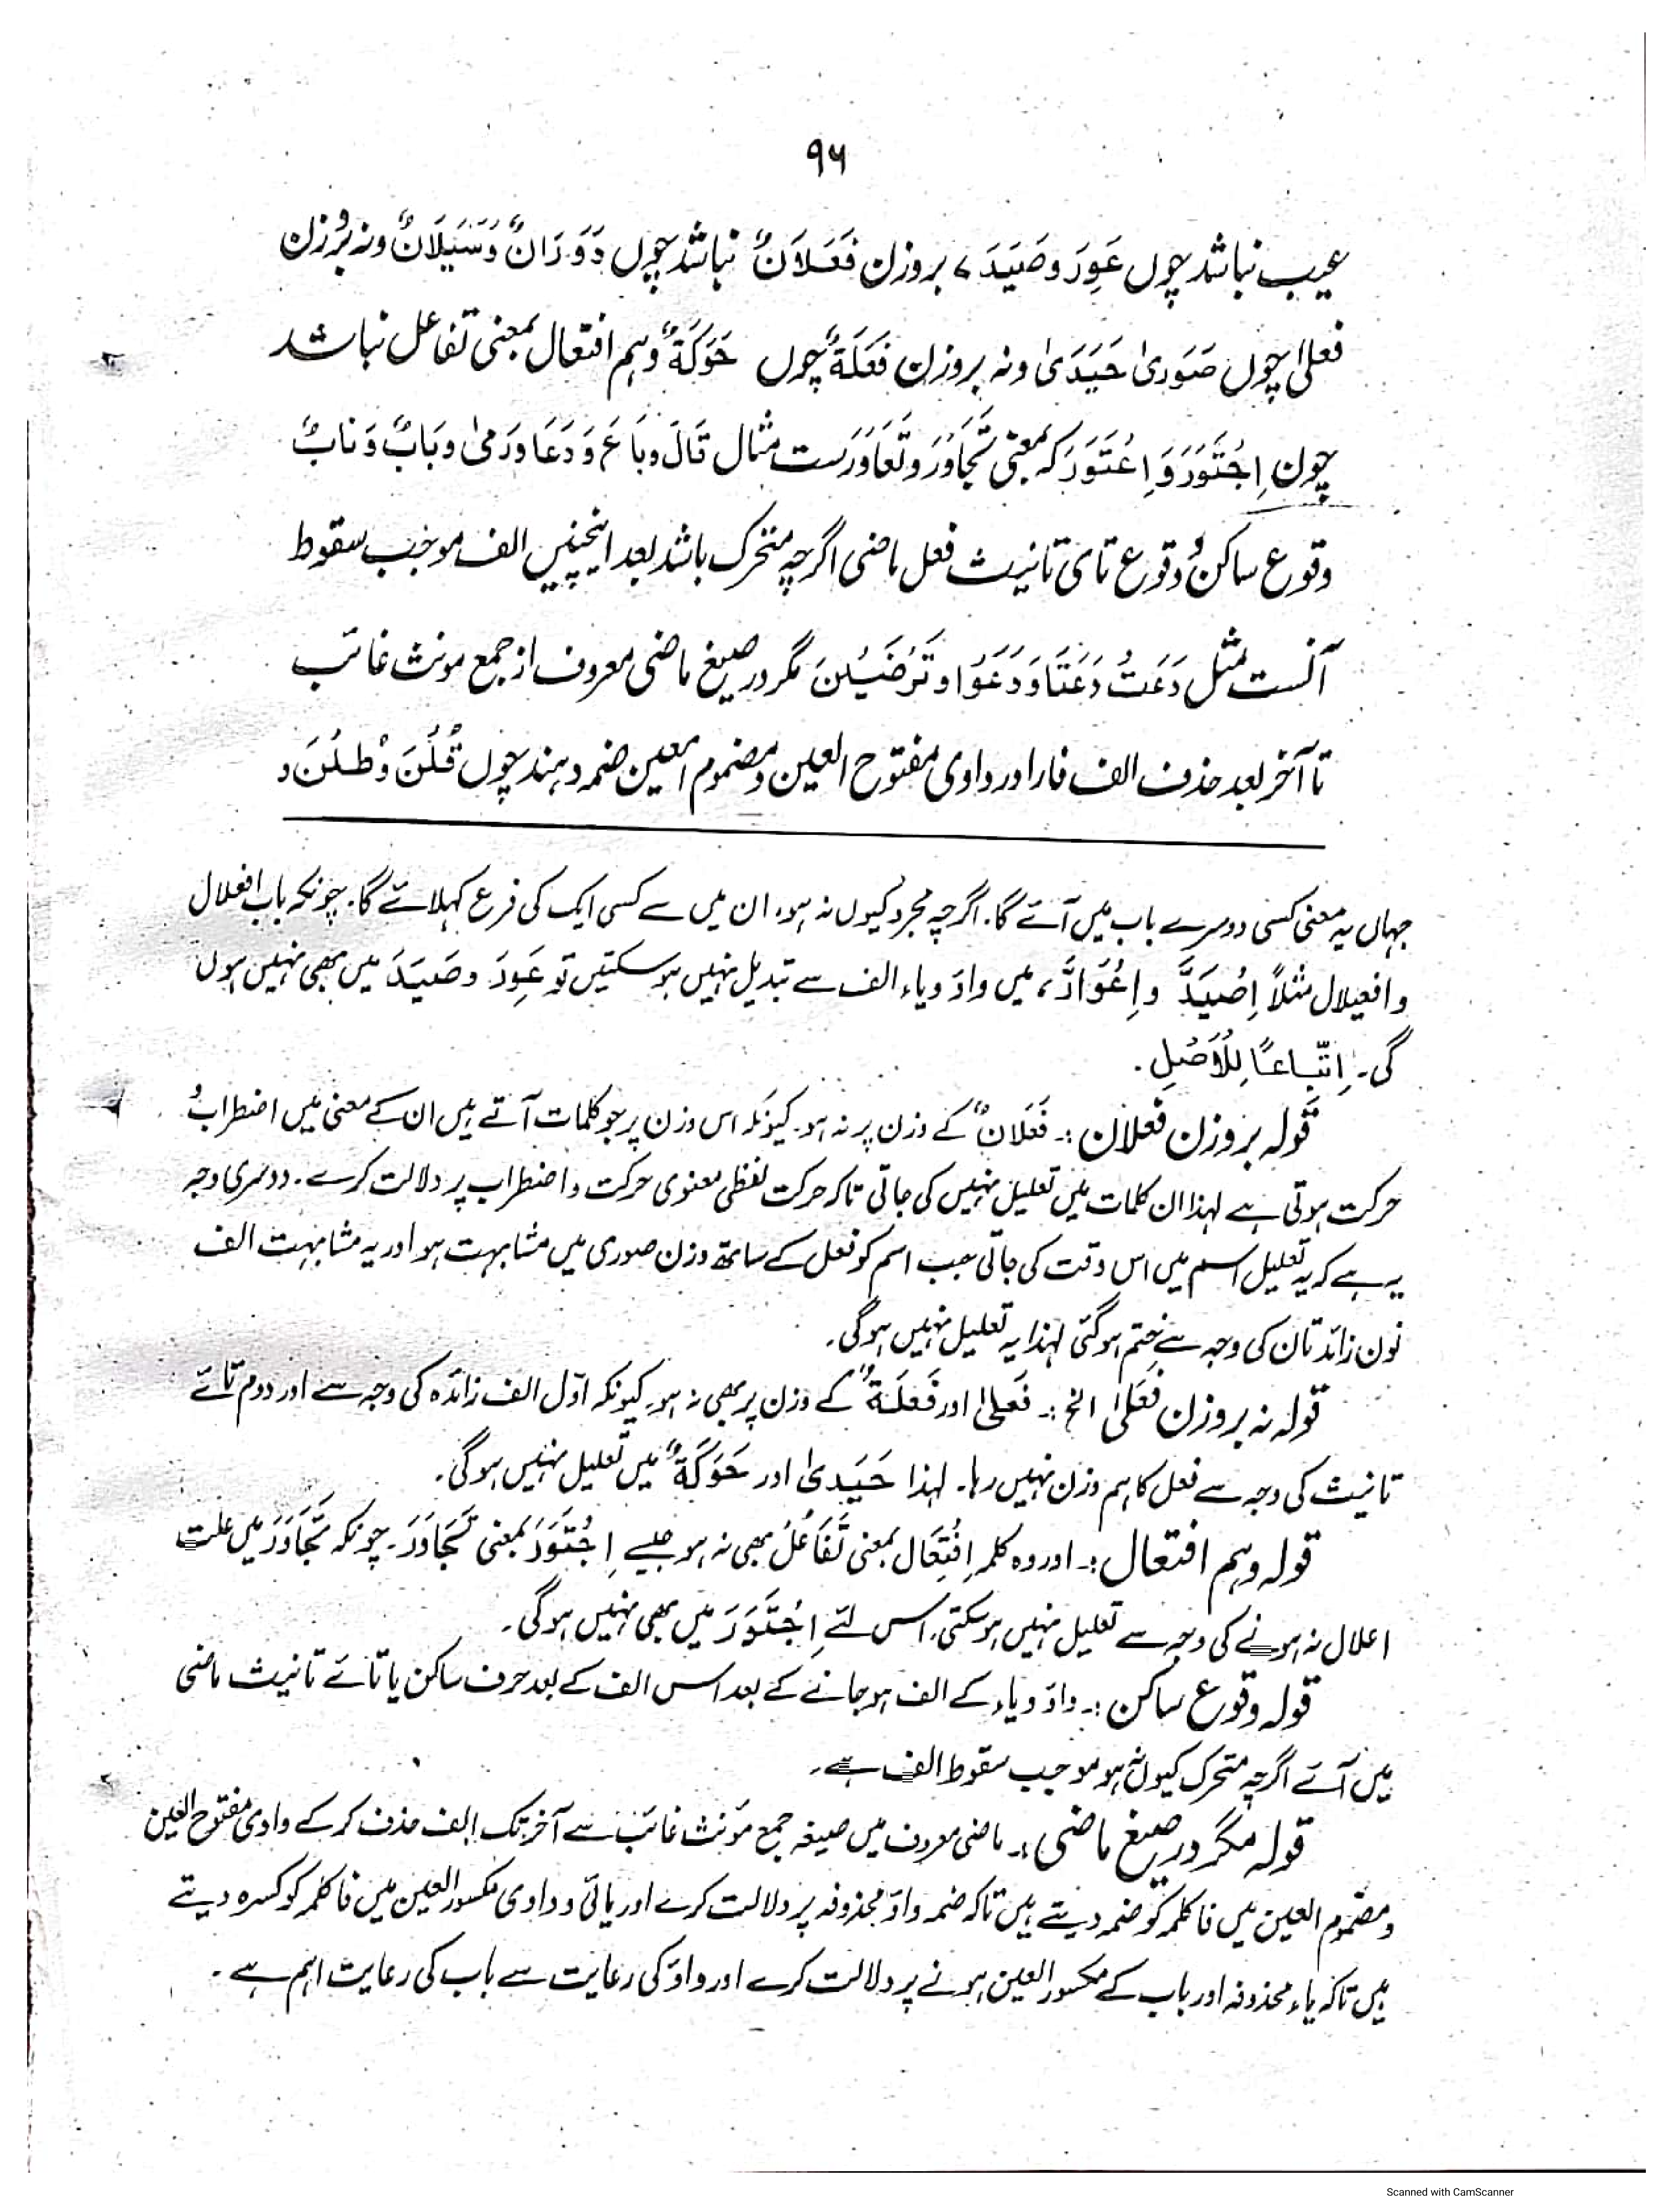 ۹۶
عیب نباشد چوں عَوِرَ وصَیِدَ، بروزن فَعَلَانٌ نباشد چوں دَوَرَانٌ وَسَیَلَانٌ ونہ بروزن
فعلیٰ چوں صَوَریٰ حَیَدَیٰ ونہ بروزن فَعَلَةٌ چوں حَوَكَةٌ وہم افتعال بمعنی تفاعل نباشد
چون اِجْتَوَرَ وَ اِعْتَوَرَ کہ بمعنی تَجَاوَرَ وتَعَاوَرَست مثال قَالَ وبَاعَ وَدَعَا ورَمیٰ وبَابٌ وَنابٌ
وقوع ساکن و وقوع تای تانیث فعل ماضی اگرچہ متحرک باشد بعد اینچنیں الف موجب سقوط
آنست مثل دَعَتْ دَعَتَا وَ دَعَوْا و تَرْضَیْنَ مگر در صیغ ماضی معروف از جمع مونث غائب
تا آخر بعد حذف الف فا را در واوی مفتوح العین و مضموم العین ضمہ دہند چوں قُلْنَ وَطُلْنَ و
جہاں یہ معنی کسی دوسرے باب میں آئے گا۔ اگرچہ مجرد کیوں نہ ہو، ان میں سے کسی ایک کی فرع کہلائے گا۔ چونکہ باب افعلال
و افعیلال مثلاً اِصْیَدَّ و اِعْوَادَّ، میں واؤ ویاء الف سے تبدیل نہیں ہو سکتیں تو عَوِرَ وصَیِدَ میں بھی نہیں ہوں
گی۔ اِتّباعًا لِلْاَصْلِ۔
قولہ بروزن فعلان :۔ فَعَلَانٌ کے وزن پر نہ ہو۔ کیونکہ اس وزن پر جو کلمات آتے ہیں ان کے معنی میں اضطراب و
حرکت ہوتی ہے لہذا ان کلمات میں تعلیل نہیں کی جاتی تاکہ حرکت لفظی معنوی حرکت و اضطراب پر دلالت کرے۔ دوسری وجہ
یہ ہے کہ یہ تعلیل اسم میں اس وقت کی جاتی جب اسم کو فعل کے ساتھ وزن صوری میں مشابہت ہو اور یہ مشابہت الف
نون زائدتان کی وجہ سے ختم ہوگئی لہذا یہ تعلیل نہیں ہوگی۔
قولہ نہ بروزن فَعَلیٰ الخ :۔ فَعَلیٰ اور فَعَلَةٌ کے وزن پر بھی نہ ہو۔ کیونکہ اوّل الف زائدہ کی وجہ سے اور دوم تائے
تانیث کی وجہ سے فعل کا ہم وزن نہیں رہا۔ لہذا حَیَدیٰ اور حَوَكَةٌ میں تعلیل نہیں ہوگی۔
قولہ وہم افتعال :۔ اور وہ کلمہ اِفْتِعَال بمعنی تَفَاعُلْ بھی نہ ہو جیسے اِجْتَوَرَ بمعنی تَجَاوَرَ۔ چونکہ تَجَاوَرَ میں علت
اعلال نہ ہونے کی وجہ سے تعلیل نہیں ہوسکتی، اس لئے اِجْتَوَرَ میں بھی نہیں ہوگی۔
قولہ وقوع ساکن :۔ واؤ ویاء کے الف ہو جانے کے بعد اس الف کے بعد حرف ساکن یا تائے تانیث ماضی
میں آئے اگرچہ متحرک کیوں نہ ہو موجب سقوط الف ہے۔
قولہ مگر در صیغ ماضی :۔ ماضی معروف میں صیغہ جمع مؤنث غائب سے آخر تک الف حذف کرکے واوی مفتوح العین
و مضموم العین میں فا کلمہ کو ضمہ دیتے ہیں تاکہ ضمہ واؤ محذوفہ پر دلالت کرے اور یائی و واوی مکسور العین میں فا کلمہ کو کسرہ دیتے
ہیں تاکہ یاء محذوفہ اور باب کے مکسور العین ہونے پر دلالت کرے اور واؤ کی رعایت سے باب کی رعایت اہم ہے۔
Scanned with CamScanner